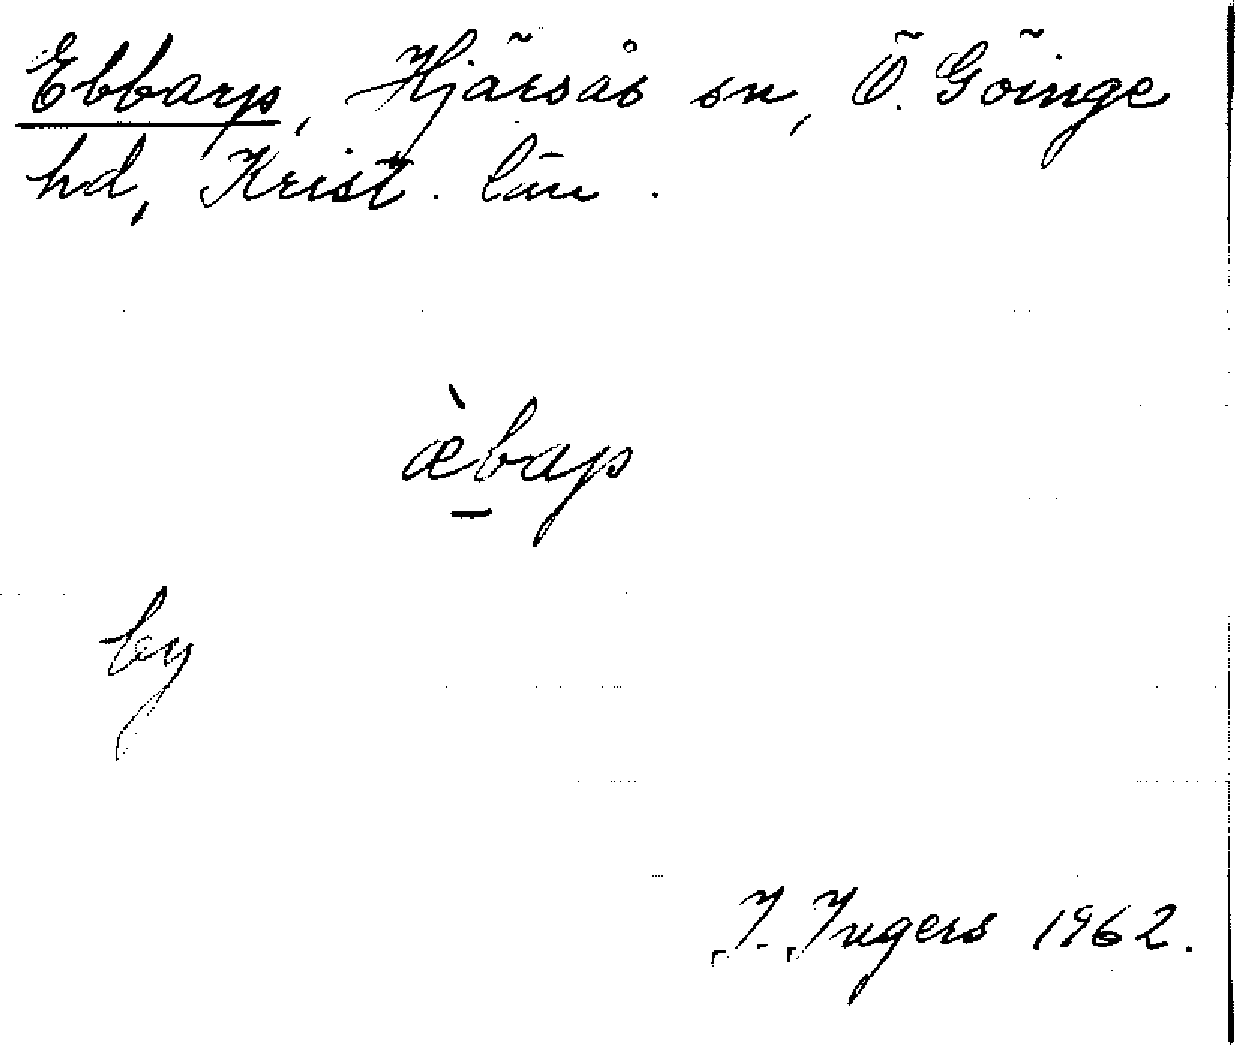 Ebbarp, Hjärsås sn, Ö. Göinge
hd, Krist. län.
æ̀bap
by
I. Ingers 1962.